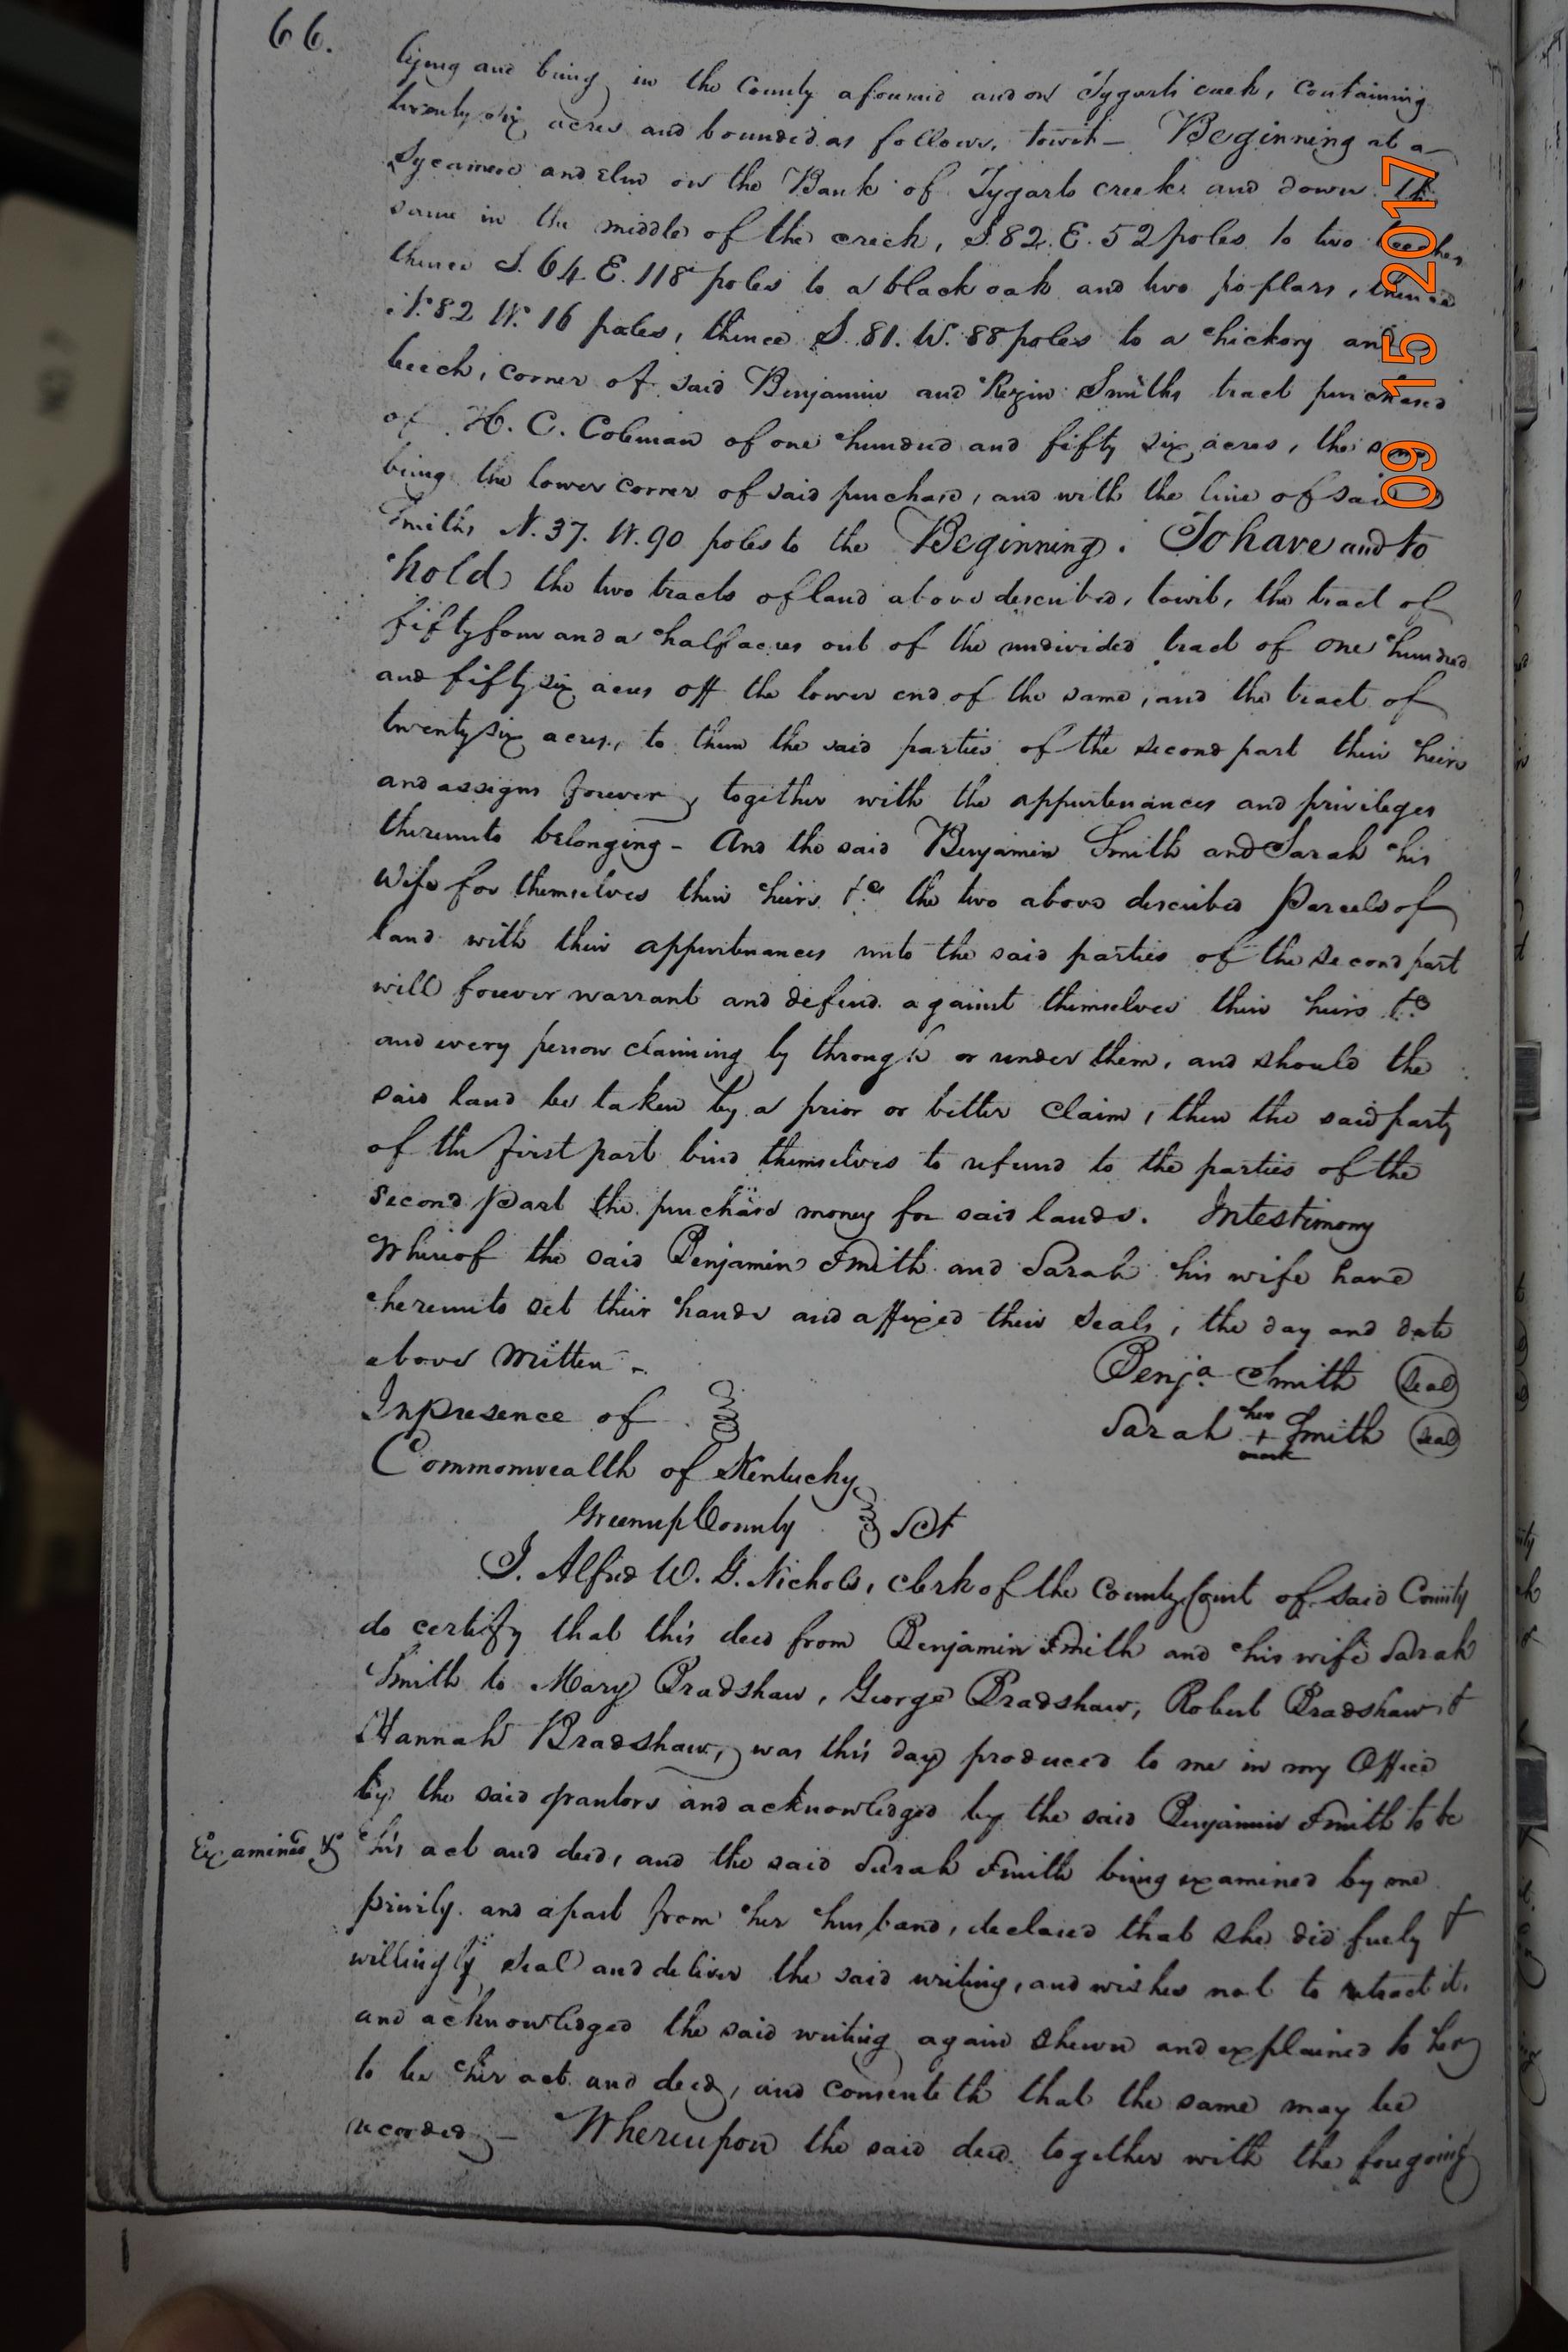 66.
lying and being in the County aforesaid and on Tygarts creek, containing
twenty six acres and bounded as follows, towit — Beginning at a
Sycamore and Elm on the Bank of Tygarts creek and down the
same in the middle of the creek, S. 82. E. 52 poles to two beeches
thence S. 64 E. 118 poles to a black oak and two poplars, thence
N. 82 W. 16 poles, thence S. 81. W. 88 poles to a hickory and
beech, corner of said Benjamin and Rezin Smiths tract purchased
of H. C. Coleman of one hundred and fifty six acres, the same
being the lower corner of said purchase, and with the line of said
Smiths N. 37. W. 90 poles to the Beginning. To have and to
hold the two tracts of land above described, towit, the tract of
fifty four and a half acres out of the undivided tract of one hundred
and fifty six acres off the lower end of the same, and the tract of
twenty six acres, to them the said parties of the second part their heirs
and assigns forever, together with the appurtenances and privileges
thereunto belonging - And the said Benjamin Smith and Sarah his
Wife for themselves their heirs &c the two above described Parcels of
land with their appurtenances unto the said parties of the second part
will forever warrant and defend against themselves their heirs &c
and every person claiming by through or under them, and should the
said land be taken by a prior or better claim, then the said party
of the first part bind themselves to refund to the parties of the
second Part the purchase money for said lands. In testimony
Whereof the said Benjamin Smith and Sarah his wife have
hereunto set their hands and affixed their seals, the day and date
above Written -
Benja Smith (seal)
In presence of
Sarah her + mark Smith (seal)
Commonwealth of Kentucky
Greenup County Sct
I. Alfred W. G. Nichols, clerk of the County Court of said County
do certify that this deed from Benjamin Smith and his wife Sarah
Smith to Mary Bradshaw, George Bradshaw, Robert Bradshaw &
Hannah Bradshaw, was this day produced to me in my Office
by the said grantors and acknowledged by the said Benjamin Smith to be
Examined &
his act and deed, and the said Sarah Smith being examined by me
privily and apart from her husband, declared that she did freely &
willingly seal and deliver the said writing, and wishes not to retract it,
and acknowledged the said writing again shewn and explained to her
to be her act and deed, and consenteth that the same may be
recorded - Whereupon the said deed together with the foregoing
09 15 2017